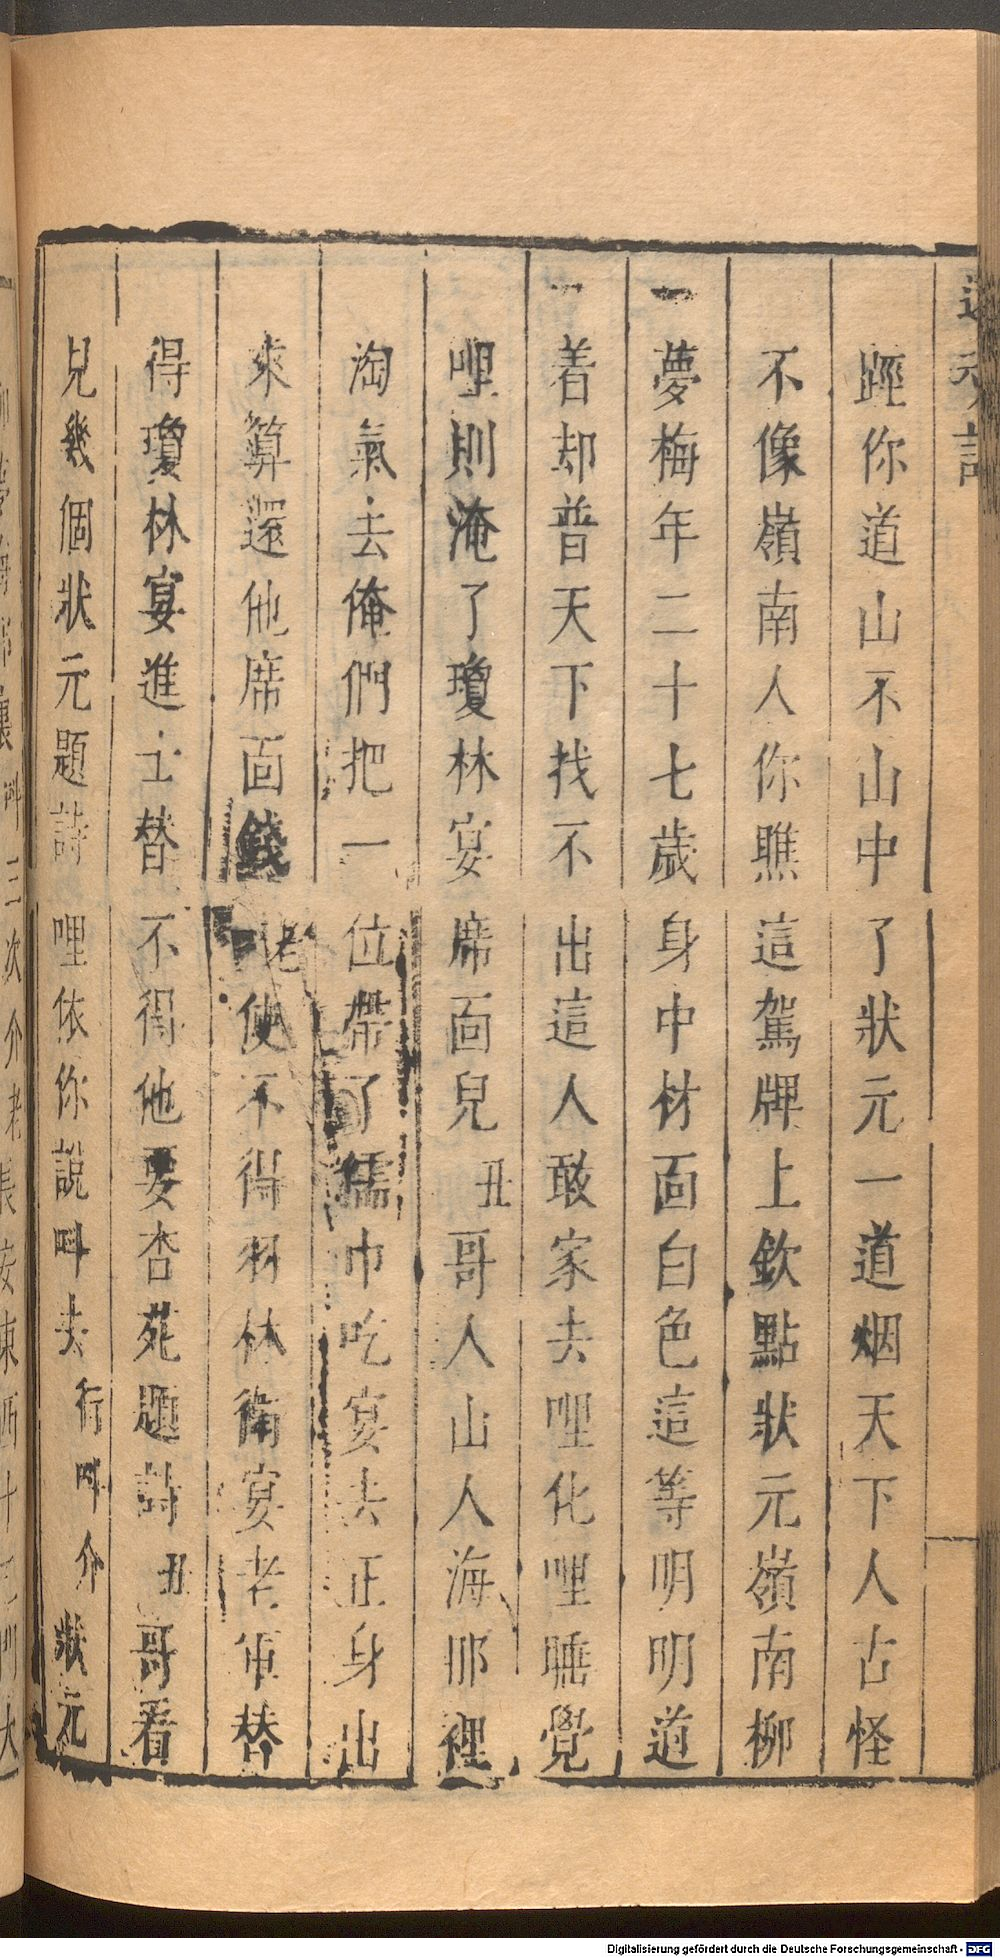 蹊你道山不山中了狀元一道烟天下人古怪
不像嶺南人你瞧這駕牌上欽點狀元嶺南柳
夢梅年二十七歲身中材面白色這等明明道
着却普天下找不出這人敢家去哩化哩睡覺
哩則淹了瓊林宴席面兒丑哥人山人海那裡
淘氣去俺們把一位帶了儒巾吃宴去正身出
來算還他席面錢老使不得羽林衛宴老軍替
得瓊林宴進士替不得他要杏苑題詩丑哥看
見幾個狀元題詩哩依你說呌去行呌介狀元
Digitalisierung gefördert durch die Deutsche Forschungsgemeinschaft - DFG